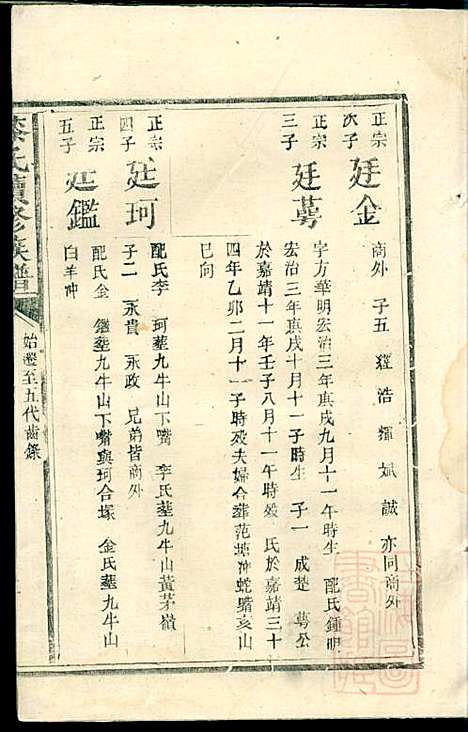 正宗
次子
廷金
商外 子五 經 浩 耀 斌 誠 亦同商外
正宗
三子
廷蕚
字方華明宏治三年庚戌九月十一午時生 配氏鍾明
宏治三年庚戌十月十一子時生 子一 成楚 蕚公
於嘉靖十一年壬子八月十一午時殁 氏於嘉靖三十
四年乙卯二月十一子時殁夫婦合葬范塘冲蛇嘴亥山
巳向
正宗
四子
廷珂
配氏李 珂塟九牛山下嘴 李氏塟九牛山黃茅嶺
子二 永貴 永政 兄弟皆商外
正宗
五子
廷鑑
配氏金 鑑塟九牛山下嘴與珂合塚 金氏塟九牛山
白羊冲
氏續修族譜
始遷至五代齒錄